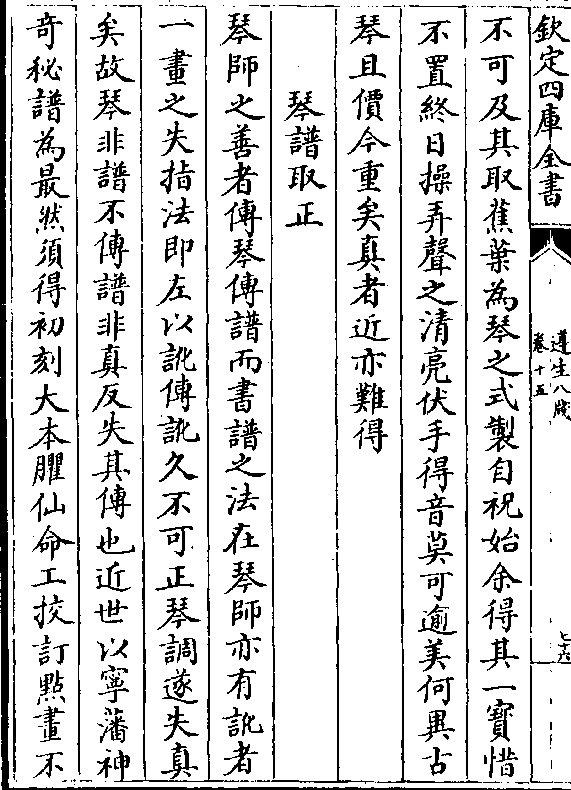 欽定四庫全書
遵生八牋
卷十五
七十六
不可及其取蕉葉為琴之式製自祝始余得其一寳惜
不置終日操弄聲之清亮伏手得音莫可逾美何異古
琴且價今重矣真者近亦難得
琴譜取正
琴師之善者傳琴傳譜而書譜之法在琴師亦有訛者
一畫之失指法即左以訛傳訛久不可正琴調遂失真
矣故琴非譜不傳譜非真反失其傳也近世以寧藩神
竒秘譜為最然須得初刻大本臞仙命工挍訂㸃畫不